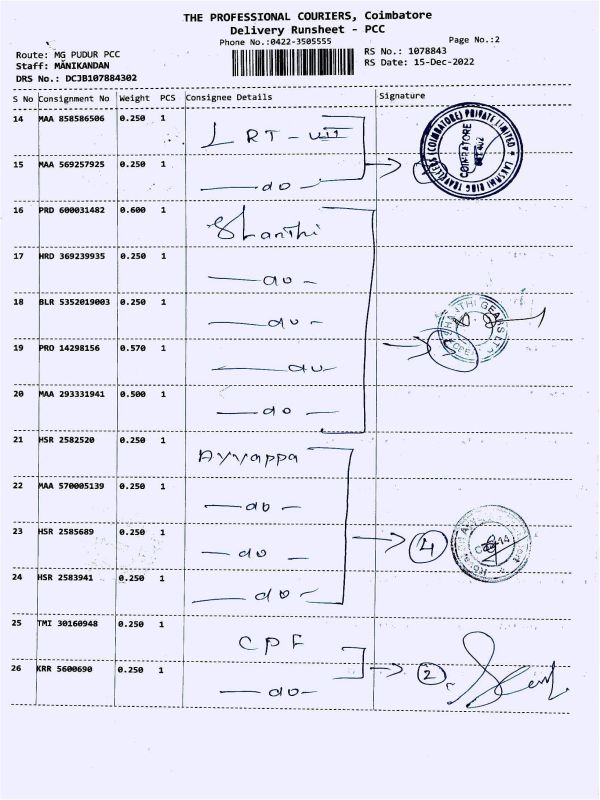 THE PROFESSIONAL COURIERS, Coimbatore
Delivery Runsheet - PCC
Phone No.:0422-3505555
Page No.:2
Route: MG PUDUR PCC
RS No.: 1078843
Staff: MANIKANDAN
RS Date: 15-Dec-2022
DRS No.: DCJB107884302
S No Consignment No Weight PCS Consignee Details Signature
14 MAA 858586506 0.250 1 LRT - VII
15 MAA 569257925 0.250 1 — do —
(COIMBATORE) PRIVATE LIMITED
COIMBATORE
16 PRD 600031482 0.600 1 Shanthi
17 HRD 369239935 0.250 1 — do —
18 BLR 5352019003 0.250 1 — do —
SHANTHI GEARS LTD
19 PRO 14298156 0.570 1 — do
20 MAA 293331941 0.500 1 — do —
21 HSR 2582520 0.250 1 Ayyappa
22 MAA 570005139 0.250 1 — do —
23 HSR 2585689 0.250 1 — do — 4
24 HSR 2583941 0.250 1 — do —
25 TMI 30160948 0.250 1 CPF
26 KRR 5600690 0.250 1 — do — 2